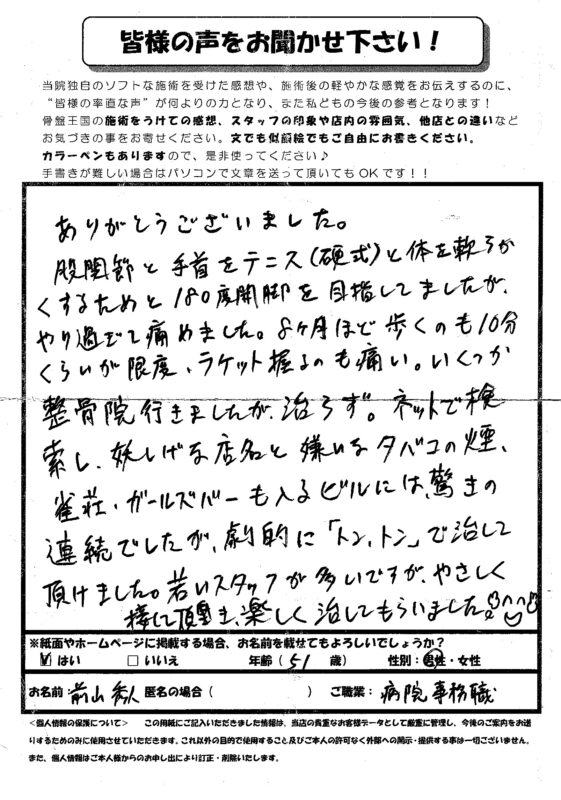 皆様の声をお聞かせ下さい！
当院独自のソフトな施術を受けた感想や、施術後の軽やかな感覚をお伝えするのに、
“皆様の率直な声”が何よりの力となり、また私どもの今後の参考となります！
骨盤王国の施術をうけての感想、スタッフの印象や店内の雰囲気、他店との違いなど
お気づきの事をお寄せください。文でも似顔絵でもご自由にお書きください。
カラーペンもありますので、是非使ってください♪
手書きが難しい場合はパソコンで文章を送って頂いてもOKです！！
ありがとうございました。
股関節と手首をテニス(硬式)と体を軟らか
くするためと180度開脚を目指してましたが、
やり過ぎて痛めました。8ヶ月ほど歩くのも10分
くらいが限度、ラケット握るのも痛い。いくつか
整骨院行きましたが、治らず。ネットで検
索し、妖しげな店名と嫌いなタバコの煙、
雀荘・ガールズバーも入るビルには、驚きの
連続でしたが、劇的に「トン、トン」で治して
頂けました。若いスタッフが多いですが、やさしく
接して頂き、楽しく治してもらいました。
※紙面やホームページに掲載する場合、お名前を載せてもよろしいでしょうか？
☑ はい □ いいえ 年齢（51 歳） 性別：男性・女性
お名前：前山秀人 匿名の場合（ ） ご職業：病院事務職
＜個人情報の保護について＞ この用紙にご記入いただきました情報は、当店の貴重なお客様データとして厳重に管理し、今後のご案内をお送
りするためのみに使用させていただきます。これ以外の目的で使用すること及びご本人の許可なく外部への開示・提供する事は一切ございません。
また、個人情報はご本人様からのお申し出により訂正・削除いたします。